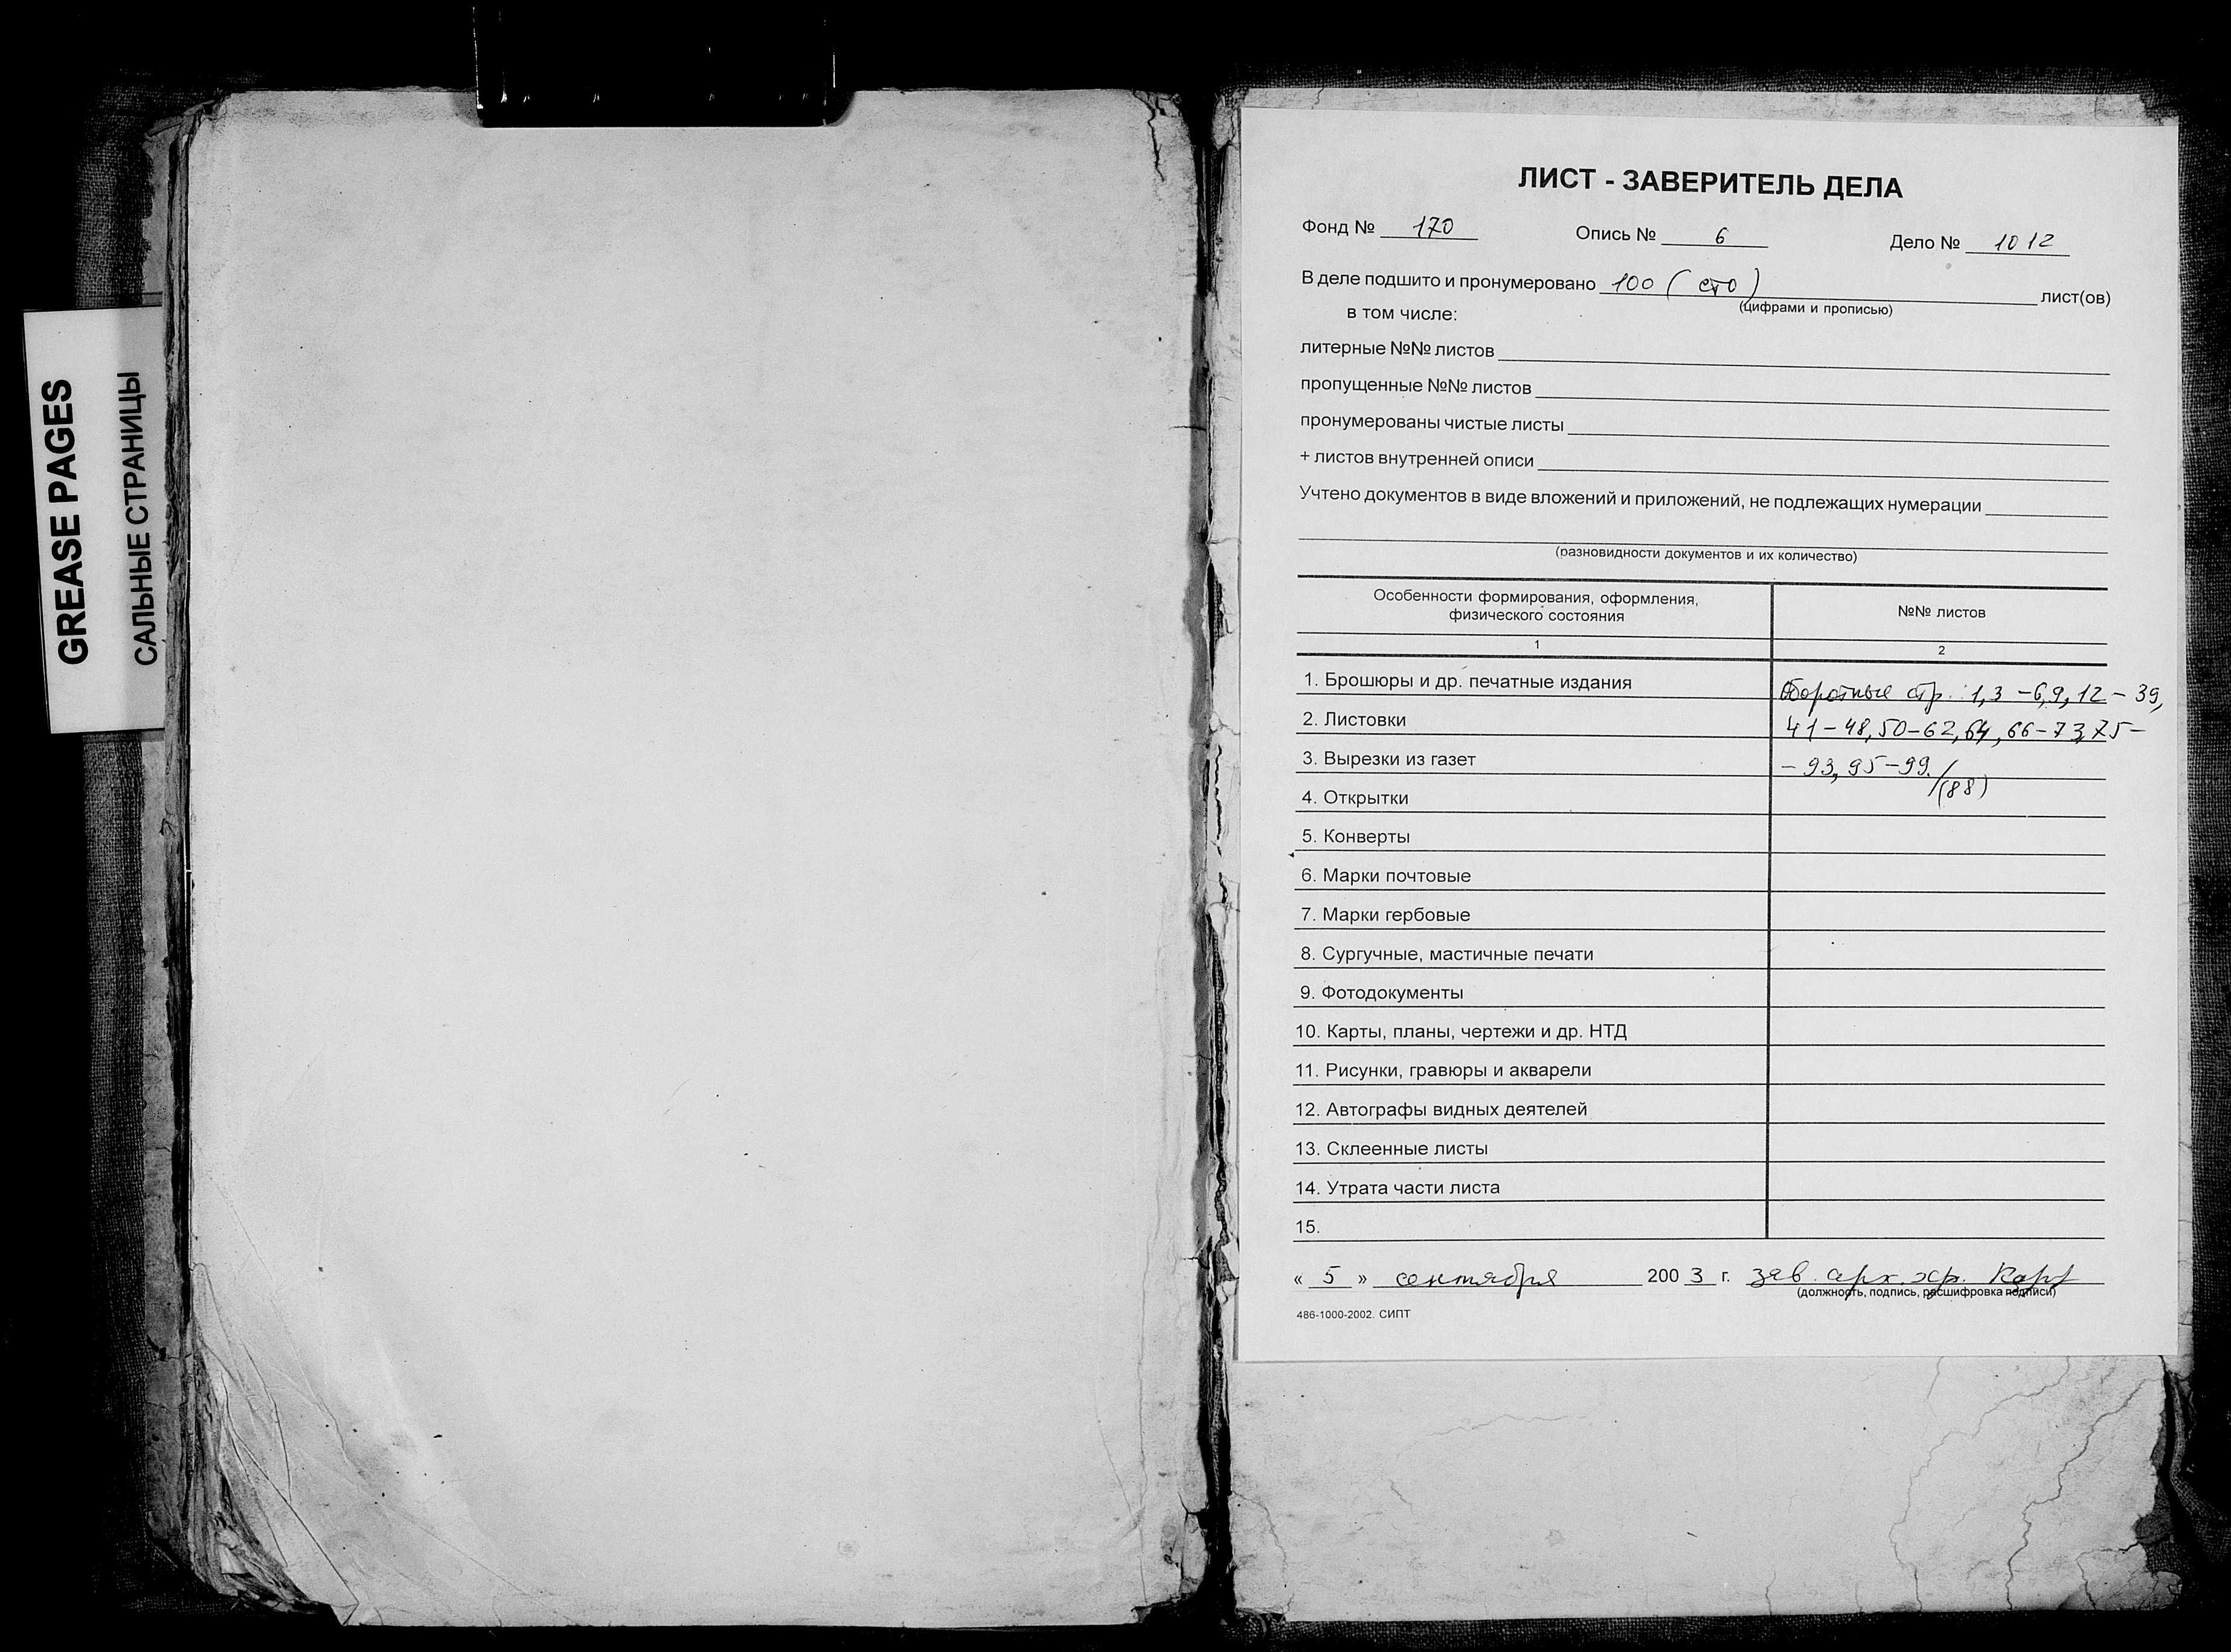 GREASE PAGES
САЛЬНЫЕ СТРАНИЦЫ
ЛИСТ - ЗАВЕРИТЕЛЬ ДЕЛА
Фонд № 170 Опись № 6 Дело № 1012
В деле подшито и пронумеровано 100 (сто) лист(ов)
(цифрами и прописью)
в том числе:
литерные №№ листов
пропущенные №№ листов
пронумерованы чистые листы
+ листов внутренней описи
Учтено документов в виде вложений и приложений, не подлежащих нумерации
(разновидности документов и их количество)
Особенности формирования, оформления, физического состояния №№ листов
1 2
1. Брошюры и др. печатные издания Оборотные стр.: 1,3-6,9,12-39,
2. Листовки 41-48,50-62,64,66-73,75-
3. Вырезки из газет -93,95-99./(88)
4. Открытки
5. Конверты
6. Марки почтовые
7. Марки гербовые
8. Сургучные, мастичные печати
9. Фотодокументы
10. Карты, планы, чертежи и др. НТД
11. Рисунки, гравюры и акварели
12. Автографы видных деятелей
13. Склеенные листы
14. Утрата части листа
15.
« 5 » сентября 2003 г. зав. арх. хр.
(должность, подпись, расшифровка подписи)
486-1000-2002. СИПТ